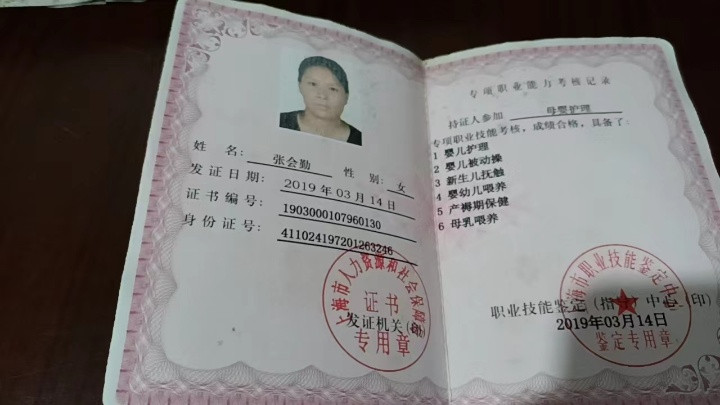 姓 名: 张会勤 性 别: 女
发证日期: 2019 年 03 月 14 日
证书编号: 1903000107960130
身份证号: 411024197201263246
上海市人力资源和社会保障局
证书
发证机关(
专用章
专项职业能力考核记录
持证人参加 母婴护理
专项职业技能考核,成绩合格,具备了:
1 婴儿护理
2 婴儿被动操
3 新生儿抚触
4 婴幼儿喂养
5 产褥期保健
6 母乳喂养
海市职业技能鉴定中心
职业技能鉴定(指导)中心(印)
2019年03月14日
鉴定专用章